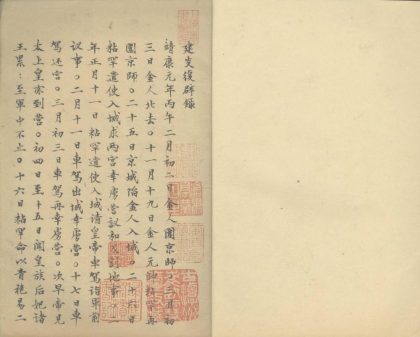 建炎復辟錄
靖康元年丙午二月初二日金人圍京師○三月初
三日金人北去○十一月十九日金人元帥粘罕再
圍京師○二十五日京城陷金人入城○二十六日
粘罕遣使入城求兩宮幸虜營議和及割地事○二
年正月十一日粘罕遣使入城請皇帝車駕詣軍前
議事○二月十一日車駕出城幸虜營○十七日車
駕還宮○三月初三日車駕再幸虜營○次早帝見
太上皇亦到營○初四日至十五日聞皇族后妃諸
王累〻至軍中不止○十六日粘罕命以青袍易二